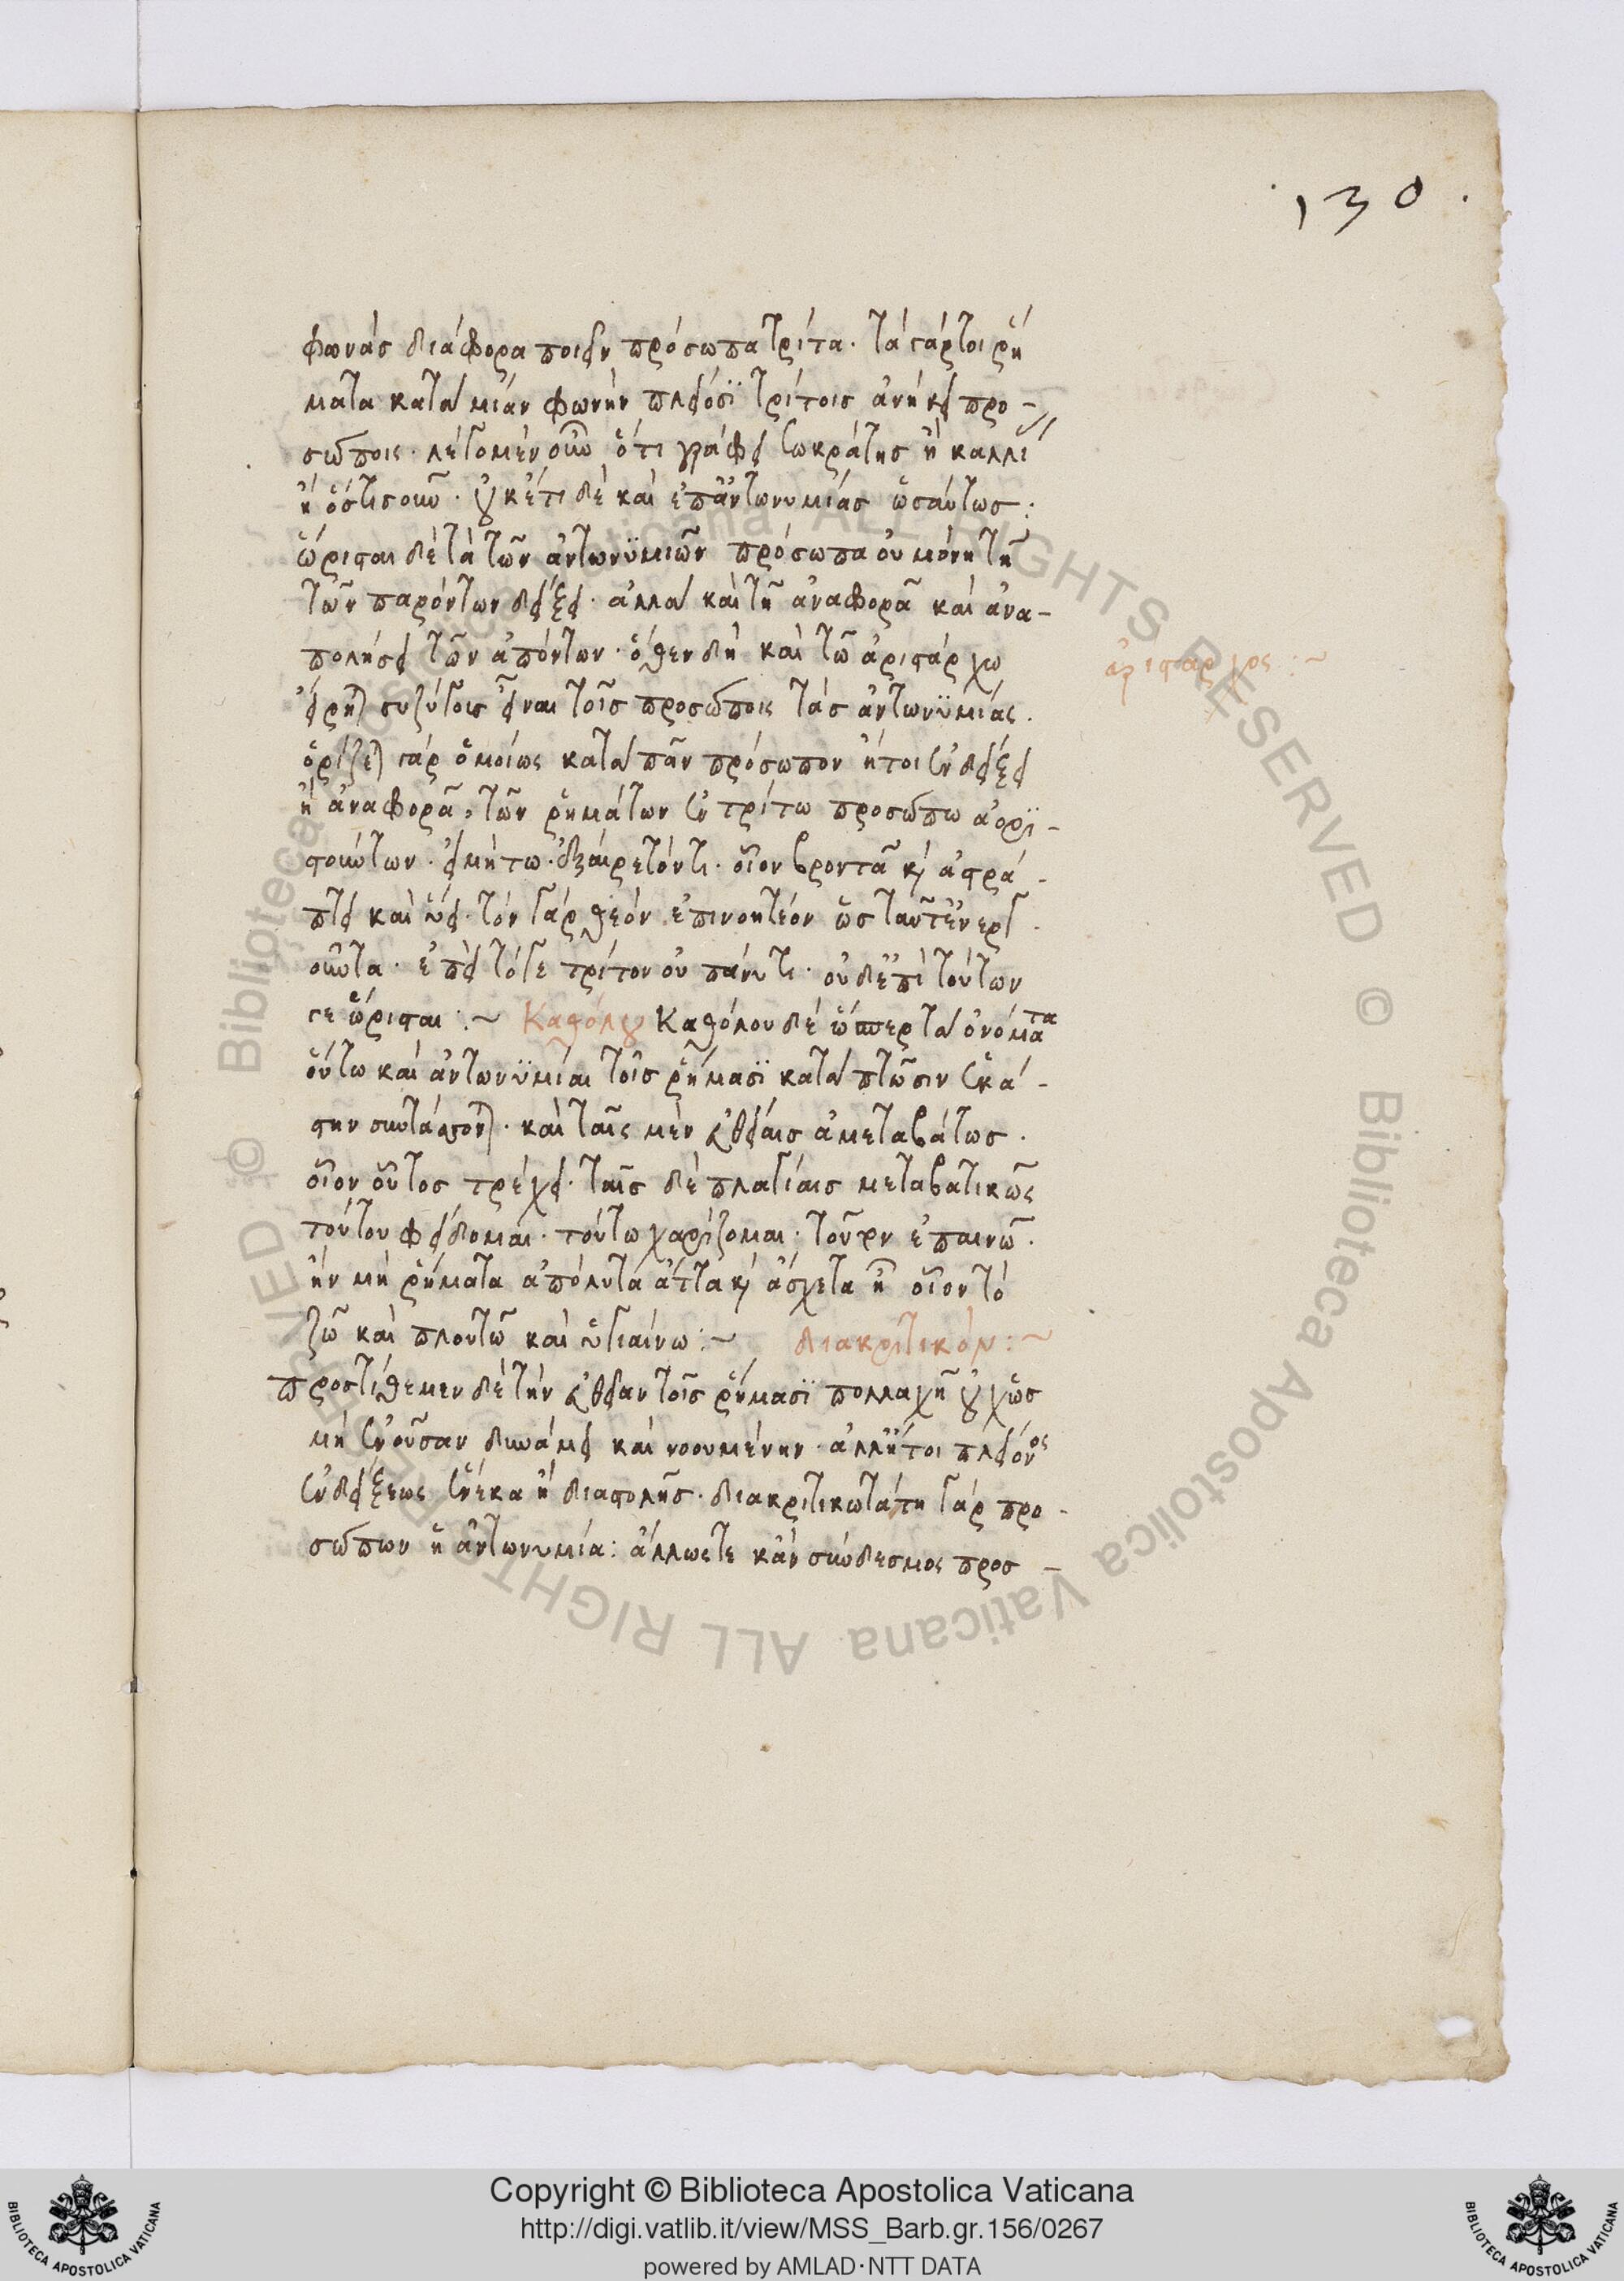 130.
φωνὰς διάφορα ποιεῖν πρόσωπα τρίτα· τὰ γάρ τοι ῥή
ματα κατὰ μίαν φωνὴν πλείοσϊ τρίτοις ἀνήκει προ-
σώποις· λέγομεν οὖν ὅτι γράφει Σωκράτης ἢ καλλί
ἢ ὅστισοῦν· οὐκέτι δὲ καὶ ἐπ ἀντωνυμίας ὡσαύτως:
ὥρισται δὲ τὰ τῶν ἀντωνϋμιῶν πρόσωπα οὐ μόνη τῆ
τῶν παρόντων δείξει· ἀλλὰ καὶ τῆ ἀναφορᾶ καὶ ἀνα-
πολήσει τῶν ἀπόντων· ὅθεν δὴ καὶ τῶ ἀριστάρχω
ἀρίσταρχος:~
εἴρηται συζύγοις εἶναι τοῖς προσώποις τὰς ἀντωνϋμίας.
ὁρίζεται γὰρ ὁμοίως κατὰ πᾶν πρόσωπον ἤτοι ἐν δείξει
ἢ ἀναφορᾶ, τῶν ῥημάτων ἐν τρίτω προσώπω ἀορϊ-
στούντων· εἰ μή τω ἐξαίρετόν τι· οἷον βροντᾶ καὶ ἀστρά-
πτει καὶ ὕει· τὸν γὰρ θεὸν ἐπινοητέον ὡς ταῦτ ἐνεργ
οῦντα· ἐπεὶ τό γε τρίτον οὐ πάνυ τι· οὐδ ἐπὶ τούτων
γε ὥρισται:~ Καθόλου Καθόλου δέ ὥσπερ τὰ ὀνόματα
οὕτω καὶ ἀντωνϋμίαι τοῖς ῥήμασϊ κατὰ πτῶσιν ἑκά-
στην συντάττονται· καὶ ταῖς μὲν εὐθείαις ἀμεταβάτως.
οἷον οὗτος τρέχει· ταῖς δὲ πλαγίαις μεταβατικῶς
τούτου φείδομαι· τούτω χαρίζομαι· τοῦτον ἐπαινῶ.
ἢν μὴ ῥήματα ἀπόλυτα ἄττα καὶ ἄσχετα ἦ οἷον τὸ
ζῶ καὶ πλουτῶ καὶ ὑγιαίνω:~ διακριτικόν:~
προστίθεμεν δὲ τὴν εὐθεῖαν τοῖς ῥήμασϊ πολλαχῆ οὐχ ὡς
μὴ ἐνοῦσαν δυνάμει καὶ νοουμένην· ἀλλ ἤτοι πλείονος
ἐνδείξεως ἕνεκα ἢ διαστολῆς· διακριτικωτάτη γὰρ προ-
σώπων ἡ ἀντωνυμία: ἄλλωστε κἂν σύνδεσμος προσ-
Copyright © Biblioteca Apostolica Vaticana
http://digi.vatlib.it/view/MSS_Barb.gr.156/0267
powered by AMLAD·NTT DATA